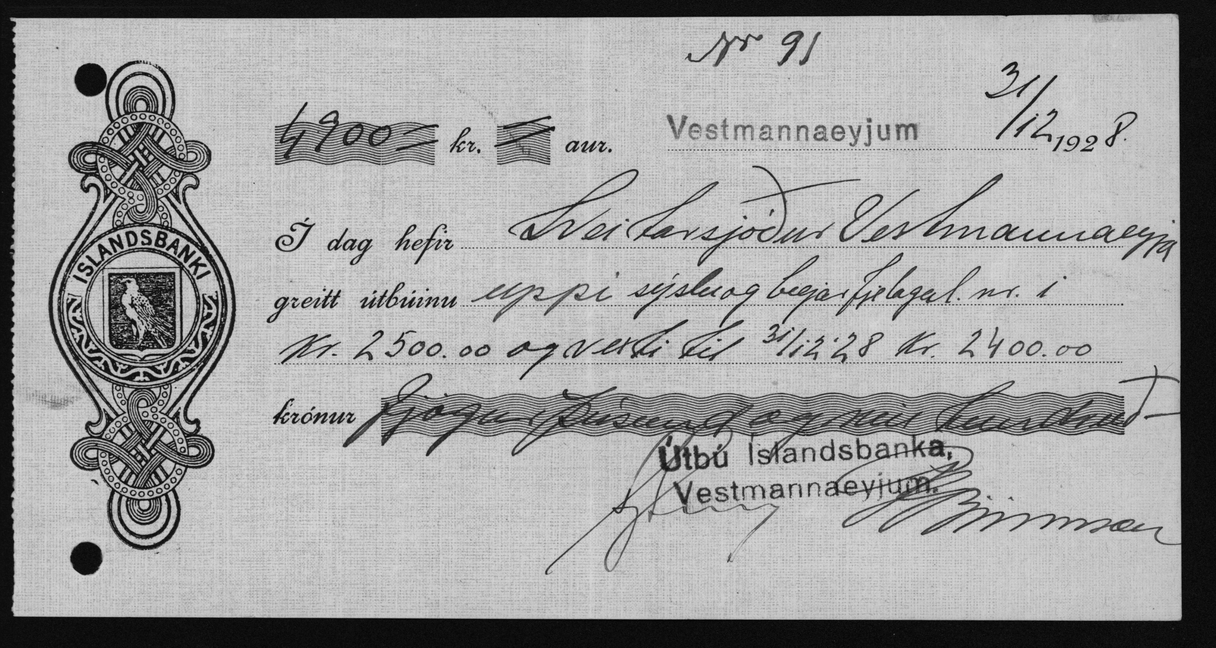 Nr 91
4900 = kr. = aur. Vestmannaeyjum 31/12 1928.
ÍSLANDSBANKI
Í dag hefir Sveitarsjóður Vestmannaeyja
greitt útbúinu uppí sýslu og bæjarfjelagal. nr. 1
Kr. 2500.00 og vexti til 31/12 '28 Kr. 2400.00
krónur Fjögur þúsund og níu hundruð
Útbú Íslandsbanka,
Vestmannaeyjum.